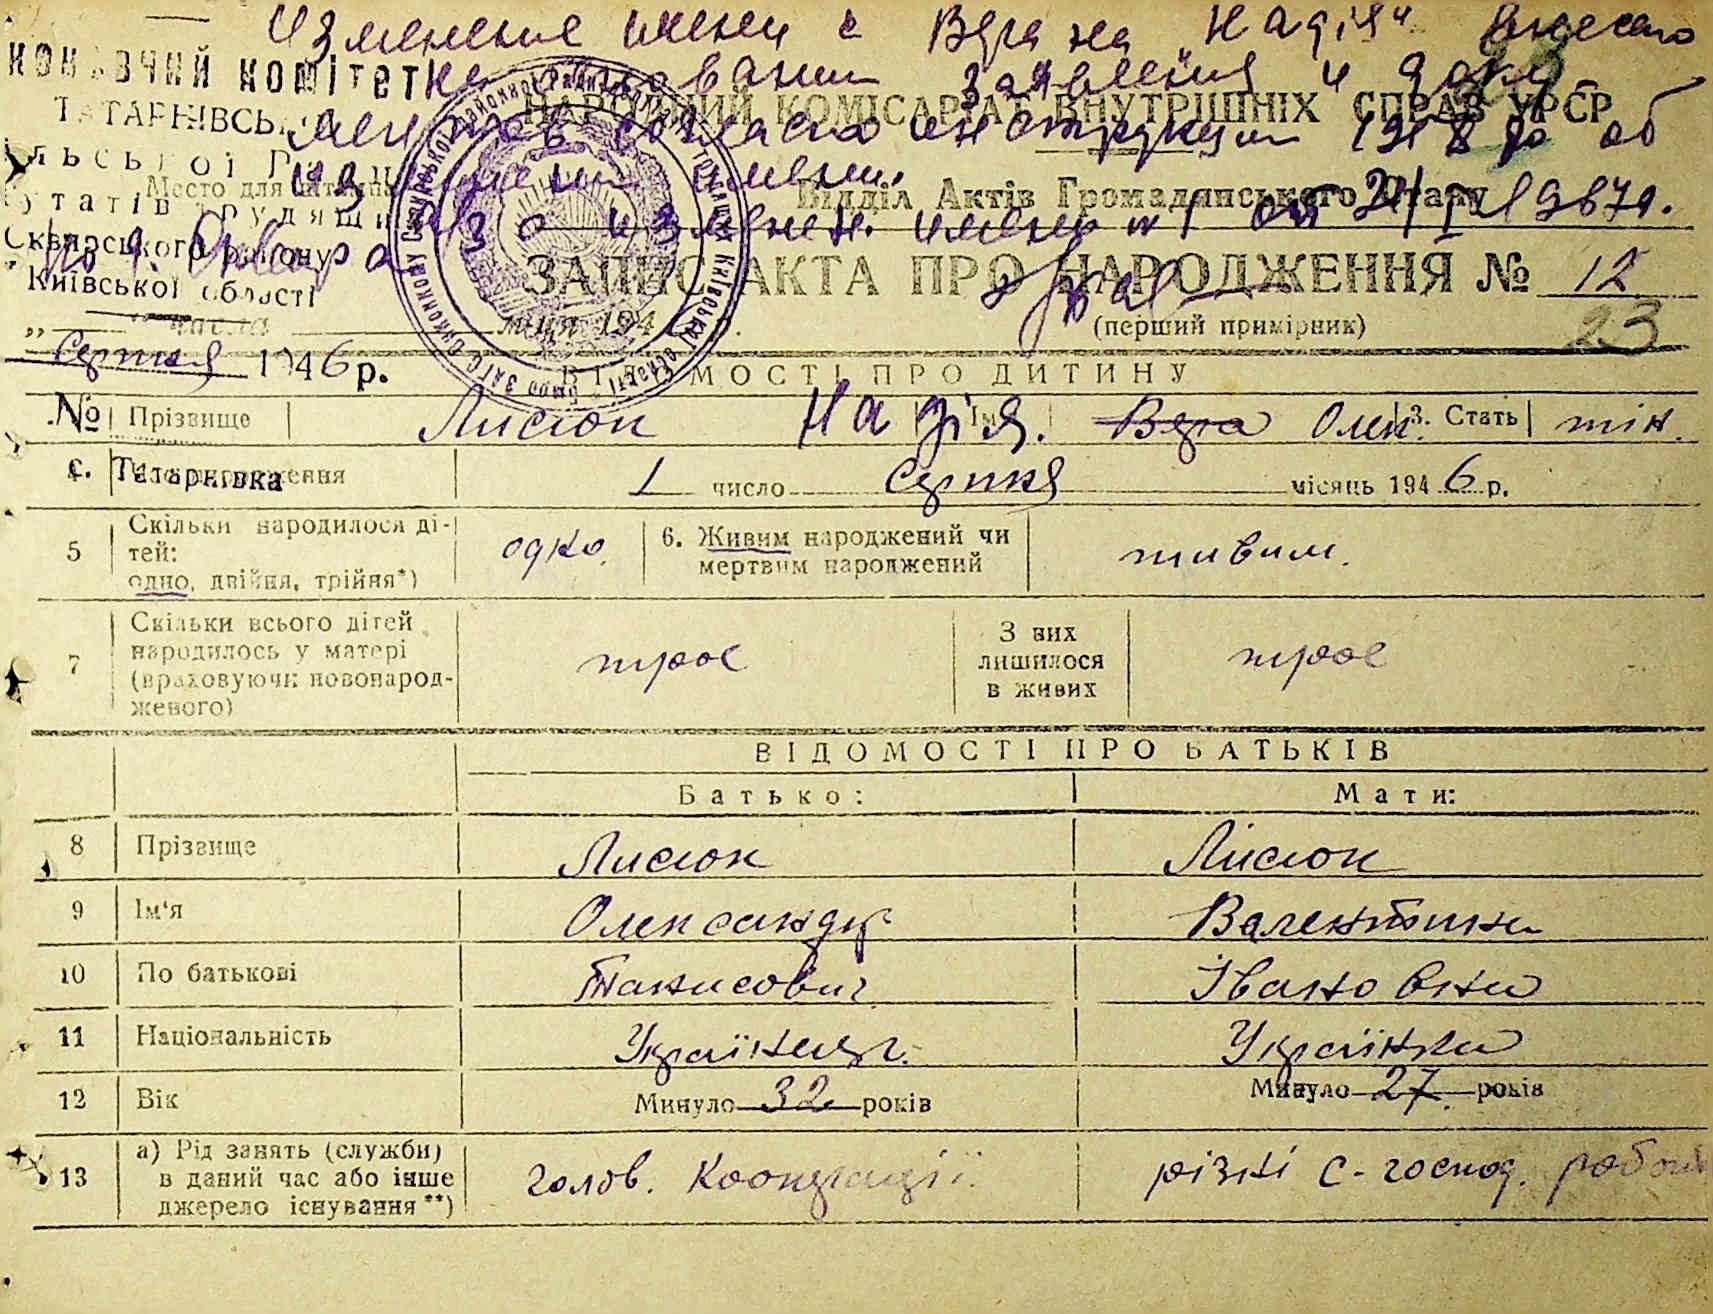 Изменение имени с Вера на "Надія" внесено
на основании заявления и доку-
ментов согласно инструкции 1918 до об
изменении имени.
з о изменен. имени № 1 от 21/I 1987г.
ТАТАРНІВСЬ
Сквирського району
Київської області
Место для штампа
НАРОДНИЙ КОМІСАРІАТ ВНУТРІШНІХ СПРАВ УРСР
Відділ Актів Громадянського Стану
ЗАПИС АКТА ПРО НАРОДЖЕННЯ № 12
(перший примірник)
23
числа місяця 194
Серпня 1946 р.
ВІДОМОСТІ ПРО ДИТИНУ
№ Прізвище Лисюк Надія. Ім'я Вера Олек. 3. Стать жін.
с. Татарнівка 1 число Серпня місяць 1946 р.
5 Скільки народилося ді-
тей:
одно, двійня, трійня*) одно. 6. Живим народжений чи
мертвим народжений живим.
7 Скільки всього дітей
народилось у матері
(враховуючи новонарод-
женого) троє З них
лишилося
в живих троє
ВІДОМОСТІ ПРО БАТЬКІВ
Батько: Мати:
8 Прізвище Лисюк Лисюк
9 Ім'я Олександр Валентина
10 По батькові Танасович Івановна
11 Національність Українець. Українка
12 Вік Минуло 32 років Минуло 27 років
13 а) Рід занять (служби)
в даний час або інше
джерело існування**) голов. Кооперації. різні с-господ. робот